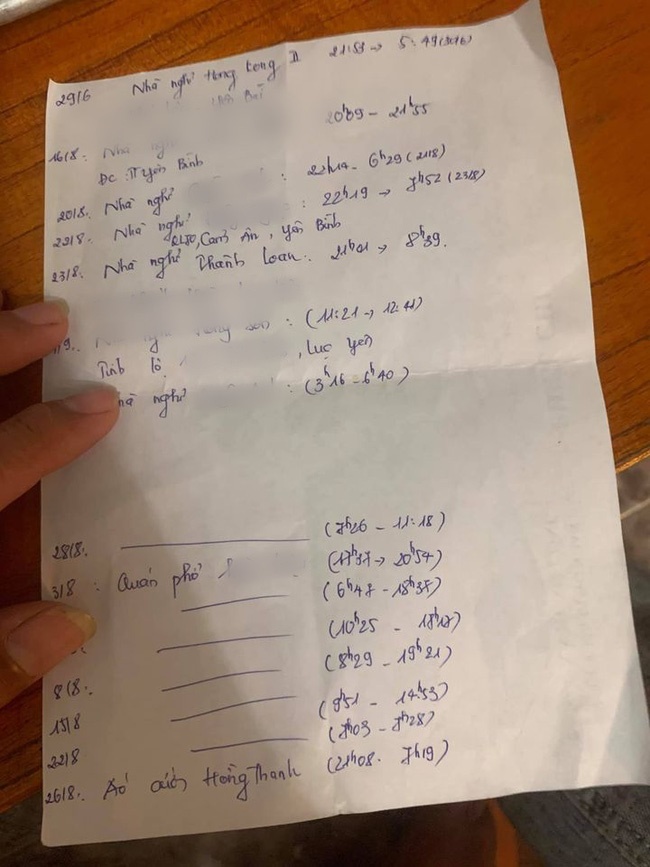 29/6 Nhà nghỉ Hong Kong II 21:53 → 5:49 (30/6)
16/8: Nhà nghỉ 20h09 - 21h55
ĐC: TT Yên Bình
20/8: Nhà nghỉ : 22h14 - 6h29 (21/8)
22/8: Nhà nghỉ : 22h19 → 7h52 (23/8)
QL70, Cảm Ân, Yên Bình
23/8: Nhà nghỉ Thanh Loan: 21h01 → 8h39.
1/9: : (11:21 → 12:41)
Tỉnh lộ, , Lục Yên
Nhà nghỉ : (3h16 - 6h40)
28/8: (7h26 - 11:18)
3/8: Quán phở (17h37 → 20h54)
(6h47 - 18h37)
(10h25 - 18h17)
(8h29 - 19h21)
8/8:
15/8 (9h51 - 14h53)
22/8 (7h03 - 7h28)
26/8: Áo cưới Hồng Thanh (21h08 - 7h19)